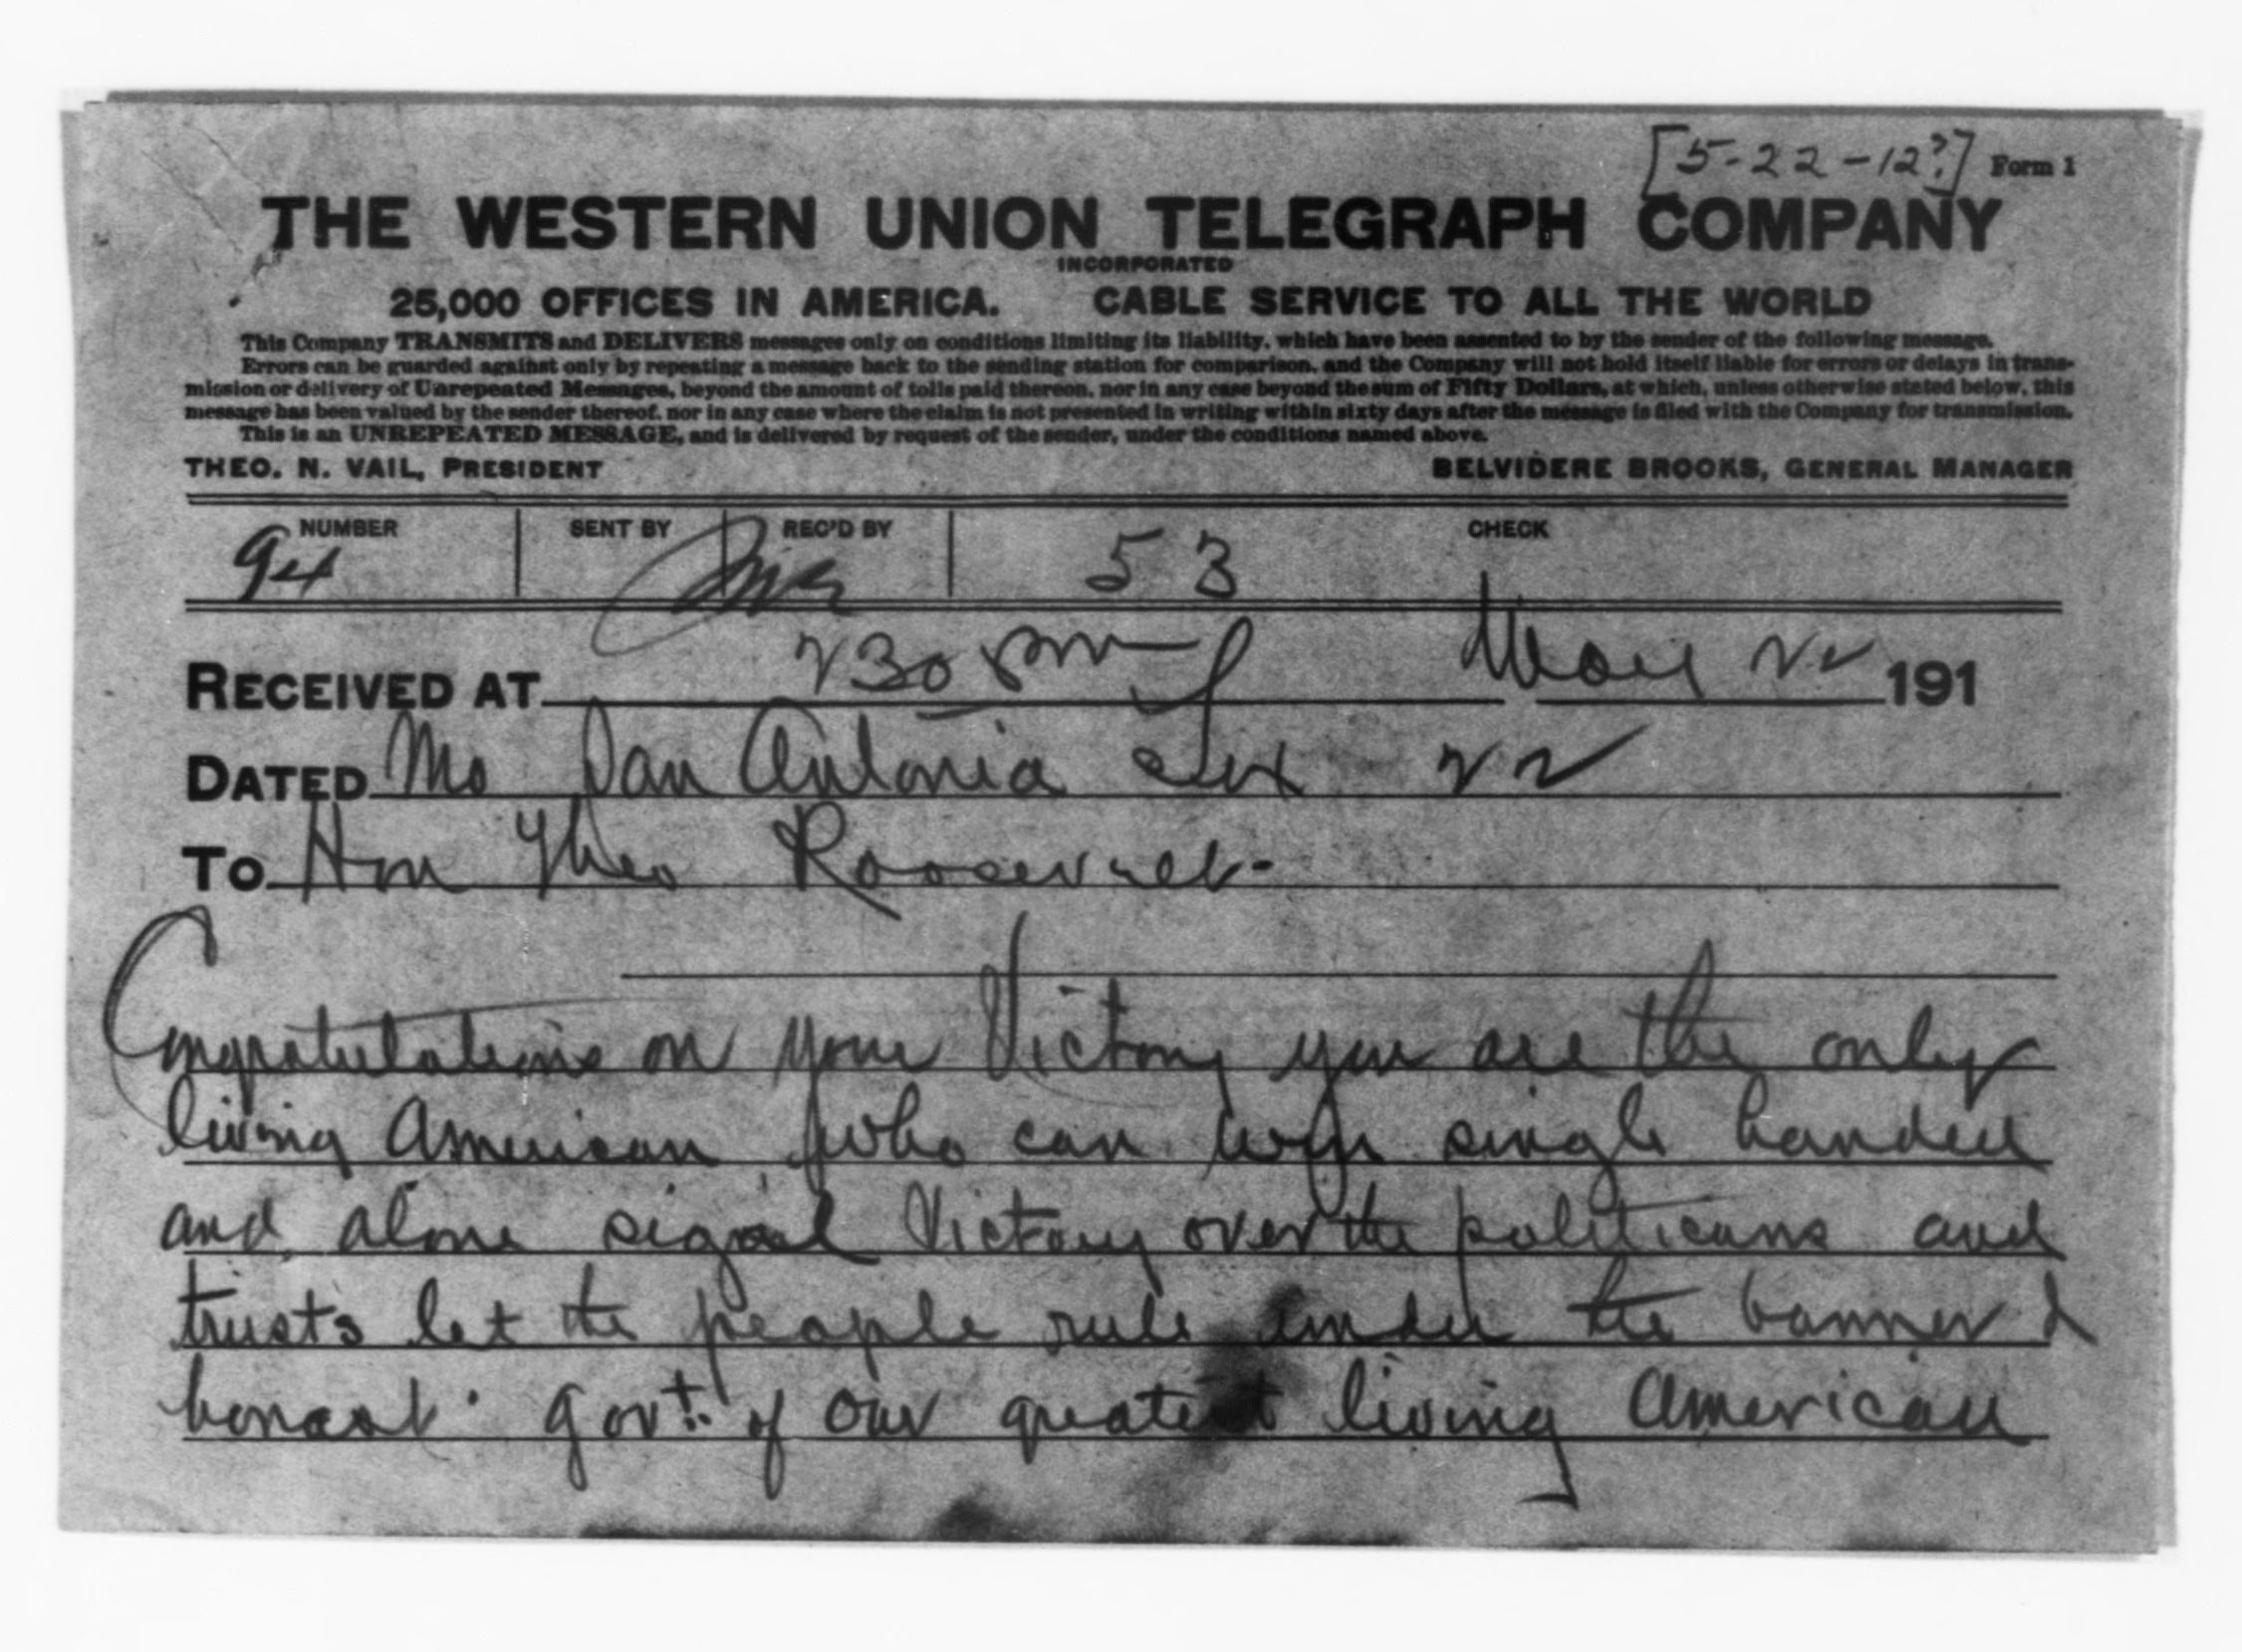 [5-22-12?] Form 1
THE WESTERN UNION TELEGRAPH COMPANY
INCORPORATED
25,000 OFFICES IN AMERICA. CABLE SERVICE TO ALL THE WORLD
This Company TRANSMITS and DELIVERS messages only on conditions limiting its liability, which have been assented to by the sender of the following message.
Errors can be guarded against only by repeating a message back to the sending station for comparison, and the Company will not hold itself liable for errors or delays in trans-
mission or delivery of Unrepeated Messages, beyond the amount of tolls paid thereon, nor in any case beyond the sum of Fifty Dollars, at which, unless otherwise stated below, this
message has been valued by the sender thereof, nor in any case where the claim is not presented in writing within sixty days after the message is filed with the Company for transmission.
This is an UNREPEATED MESSAGE, and is delivered by request of the sender, under the conditions named above.
THEO. N. VAIL, PRESIDENT BELVIDERE BROOKS, GENERAL MANAGER
NUMBER SENT BY REC'D BY CHECK
94 53
RECEIVED AT 230 pm May 22 191
DATED Mo San Antonia Tex 22
TO Hon Theo Roosevelt-
Congratulations on your Victory you are the only
living American who can win single handed
and alone signal Victory over the politicans and
trusts let the people rule under the banner
honest govt. of our greatest living American